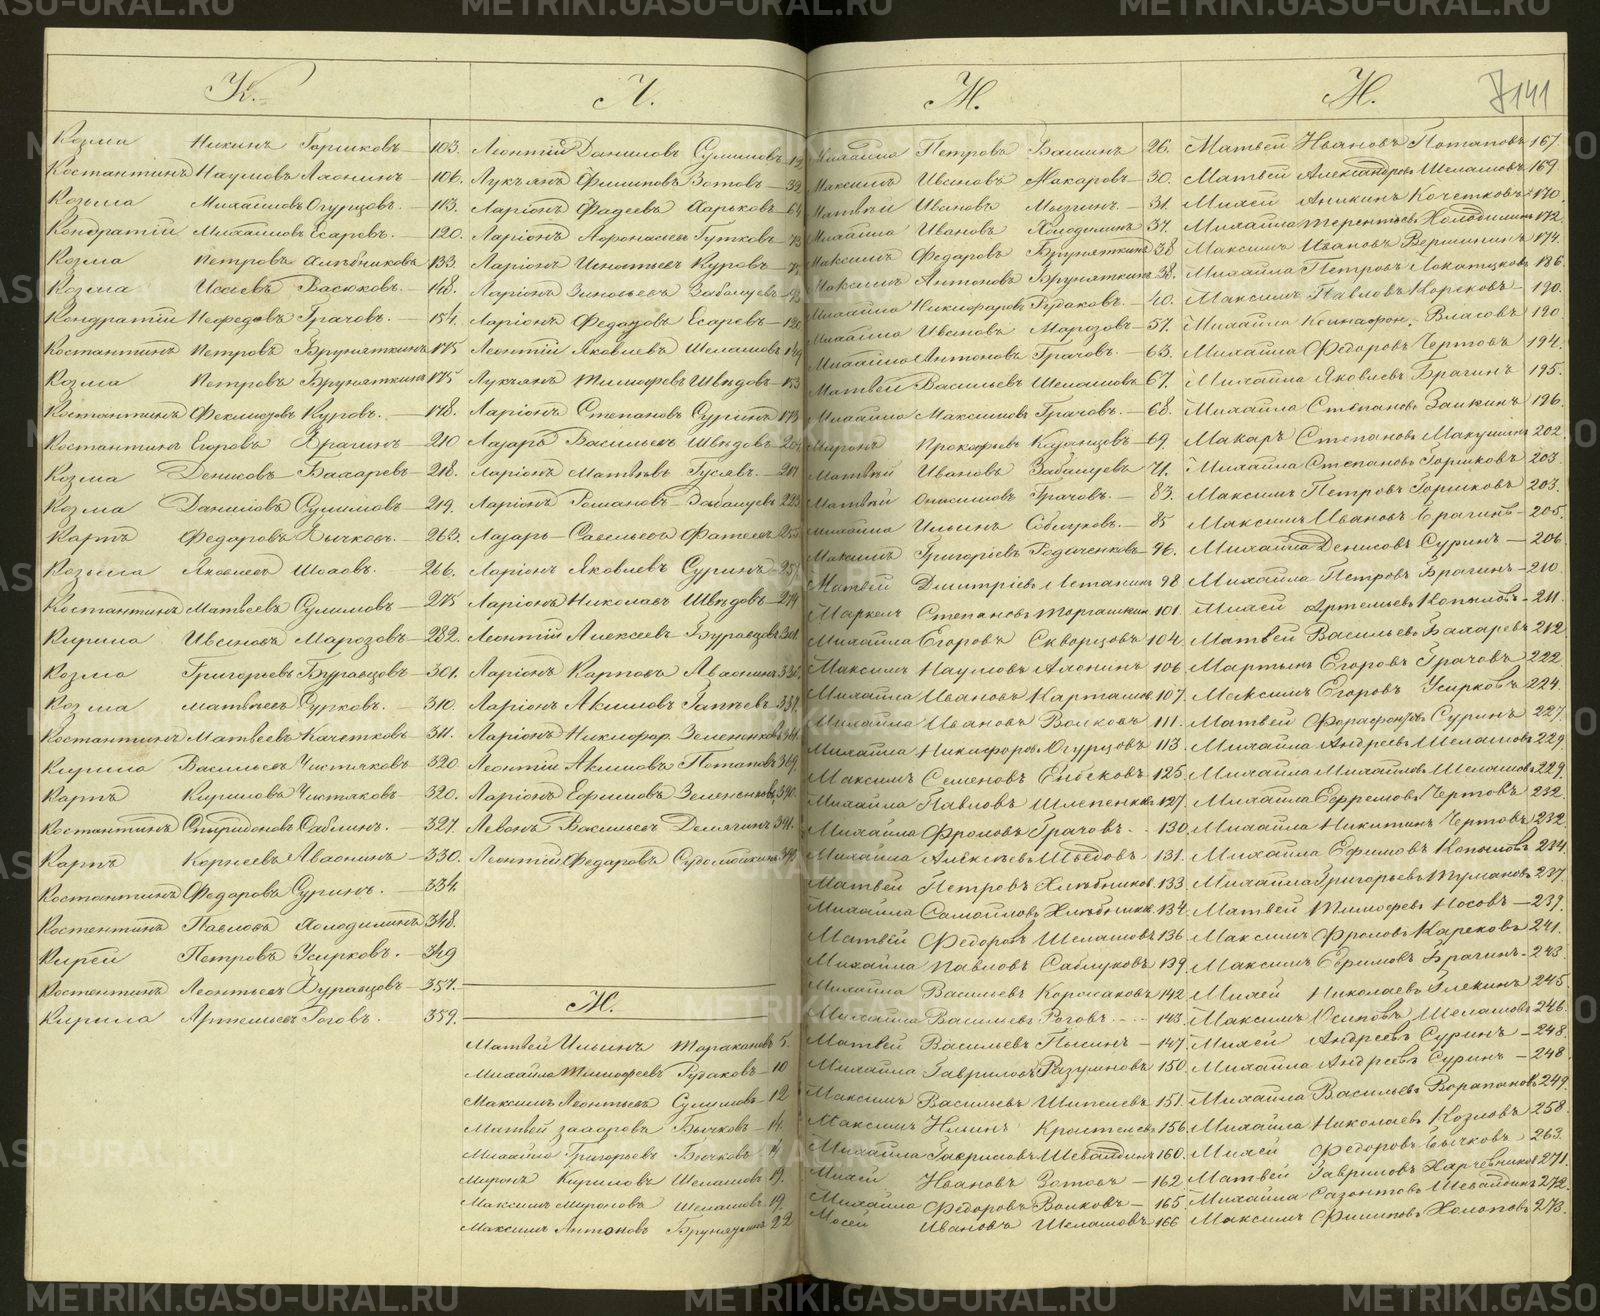 К.
Козма Никинъ Горшковъ 103.
Костантинъ Наумовъ Лаонинъ 106.
Козьма Михаиловъ Огурцовъ. 113.
Кондратій Михайловъ Есаревъ. 120.
Козма Петровъ 133
Козма Исаевъ Васюковъ. 148.
Кондратій Нефедовъ Грачовъ. 154.
Костантинъ Петровъ Бруняткинъ 175
Козма Петровъ Бруняткинъ 175.
Костантинъ Феклистовъ Куровъ. 178.
Костантинъ Егоровъ Брагинъ 210
Козма Денисовъ Бахаревъ 218.
Козма Даниловъ Сулимовъ 219.
Карпъ Федаровъ Бычковъ. 263.
Козьма Яковлевъ 266.
Костантинъ Матвеевъ Сулимовъ 275
Кирила Ивановъ Марозовъ 282.
Козма Григорьевъ Журавцовъ 301.
Козма Матвеевъ Сурковъ. 310.
Костантинъ Матвеевъ Качетковъ 311.
Кирила Васильевъ Чистяковъ 320.
Карпъ Кириловъ Чистяковъ 320.
Костантинъ Спиридоновъ Саблинъ. 327.
Карпъ Корнеевъ Аваонинъ 330.
Костантинъ Федаровъ Суринъ. 334.
Костентинъ Павловъ Холодилинъ 348.
Кирей Петровъ Усирковъ. 349
Костентинъ Леонтьевъ Журавцовъ 357.
Кирила Артемьевъ Роговъ. 359.
Л.
Леонтій Даниловъ Сулимовъ 19
Лукъянъ Филиповъ Зотовъ 39
Ларіонъ Фадеевъ Харьковъ 64
Ларіонъ Афонасьевъ Гутковъ
Ларіонъ Игнатьевъ Куровъ
Ларіонъ Зиновьевъ Забалуевъ
Ларіонъ Федоровъ Есаревъ 120
Леонтій Яковлевъ Шелашовъ 149
Лукъянъ Тимофеевъ Шведовъ 153
Ларіонъ Степановъ Суринъ 175
Лазарь Васильевъ Шведовъ 204
Ларіонъ Матвеевъ Гусевъ. 211
Ларіонъ Романовъ Забалуевъ 223
Лазарь Савельевъ Фатеевъ 255
Ларіонъ Яковлевъ Суринъ 257
Ларіонъ Николаевъ Шведовъ 274
Леонтій Алексеевъ Журавцовъ 301.
Ларіонъ Карповъ Аваонинъ 330.
Ларіонъ Акимовъ Гапеевъ 331.
Ларіонъ Никифор. Зелененковъ
Леонтій Акимовъ Потаповъ 369.
Ларіонъ Ефимовъ Зелененковъ 390.
Левонъ Васильевъ Демягинъ 391.
Леонтій Федаровъ
М.
Матвей Ильинъ Тараканов 5.
Михайло Тимофеевъ Рудаковъ 10
Максимъ Леонтьевъ Сулимовъ 12
Матвей Захаровъ Бычковъ 14.
Михайло Григорьевъ Бычковъ 14
Миронъ Кириловъ Шелашовъ 19.
Максимъ Мироновъ Шелашовъ 19.
Максимъ Антоновъ Бруняткинъ 22
М.
Михайла Петровъ Вашинъ 26.
Максимъ Ивановъ Макаровъ 30.
Матвей Ивановъ Мызгинъ. 31.
Михайла Ивановъ Холодилинъ 37.
Максимъ Федаровъ Бруняткинъ 38
Максимъ Антоновъ Бруняткинъ 38.
Михайла Никифаровъ Рудаковъ. 40.
Михайла Ивановъ Марозовъ 57.
Михайла Антоновъ Грачовъ. 63.
Матвей Васильевъ Шелашовъ 67.
Михайла Максимовъ Грачовъ. 68.
Миронъ Прокофьевъ Кузнецовъ 69
Матвей Ивановъ Забалуевъ 71.
Матвей Онисимовъ Грачовъ. 83.
Михайла Ильинъ Саблуковъ. 85
Максимъ Григорьевъ Родиченковъ 96.
Матвей Дмитріевъ Астахинъ 98
Маркелъ Степановъ Торгашкин 101.
Михайла Егоровъ Скворцовъ 104.
Максимъ Наумовъ Алонинъ 106
Михайла Ивановъ Карташов 107.
Михайла Ивановъ Волковъ 111.
Михайла Никифоровъ Огурцовъ 113
Максимъ Семеновъ 125.
Михайла Павловъ Шлепенков 127.
Михайла Фроловъ Грачовъ. 130.
Михайла Алексеевъ Шведовъ 131.
Матвей Петровъ Хлебников 133.
Михайла Самойловъ Хлебников 134.
Матвей Федоровъ Шелашовъ 136
Михайла Павловъ Саблуковъ 139.
Михайла Васильевъ Корсаковъ 142
Михайла Васильевъ Роговъ. 143.
Матвей Васильевъ Пысинъ 147.
Михайла Гавриловъ Разумновъ 150.
Максимъ Васильевъ Шипелевъ 151.
Максимъ Ильинъ 156.
Михайла Гавриловъ Шевалдинъ 160.
Мигей Ивановъ Зотовъ 162
Михайла Федоровъ Волковъ 165.
Мосей Ивановъ Шелашовъ 166
М.
7141
Матвей Ивановъ Потаповъ 167.
Матвей Александровъ Шелашовъ 169
Михей Аникинъ Кочетковъ 170.
Михайла Терентьевъ Холодилинъ 172
Максимъ Ивановъ Вершининъ 174.
Михайла Петровъ Локатцковъ 186.
Максимъ Павловъ Корековъ 190.
Михайла Ксинафон. Власовъ 190
Михайла Федоровъ Чертовъ 194.
Михайла Яковлевъ Брагинъ 195.
Михайла Степановъ Заикинъ 196.
Макаръ Степановъ Макушинъ 202.
Михайла Степановъ Горшковъ 203.
Максимъ Петровъ Горшковъ 203.
Максимъ Ивановъ Брагинъ 205.
Михайла Денисовъ Суринъ 206.
Михайла Петровъ Брагинъ 210.
Михей Артемьевъ Копыловъ 211.
Матвей Васильевъ Бахаревъ 212.
Мартынъ Егоровъ Грачовъ 222.
Максимъ Егоровъ Усирковъ 224.
Матвей Фарафонтовъ Суринъ 227.
Михайла Андреевъ Шелашовъ 229.
Михайла Михайловъ Шелашовъ 229.
Михайла Ефремовъ Чертовъ 232.
Михайла Никитинъ Чертовъ 232.
Михайла Ефимовъ Копыловъ 234.
Михайла Григорьевъ Тумановъ 237.
Матвей Тимофеевъ Носовъ 239.
Максимъ Фроловъ Карековъ 241.
Максимъ Ефимовъ Брагинъ 243.
Михей Николаевъ Глекинъ 245.
Максимъ Осиповъ Шелашовъ 246.
Михей Андреевъ Суринъ 248.
Михайла Андреевъ Суринъ 248.
Михайла Васильевъ Варапановъ 249.
Михайла Николаевъ Козловъ 258.
Михей Федоровъ Бычковъ 263.
Матвей Гавриловъ Харчевников 271.
Михайла Сазонтовъ Шевалдинъ 272.
Максимъ Филиповъ Холоповъ 273.
METRIKI.GASO-URAL.RU